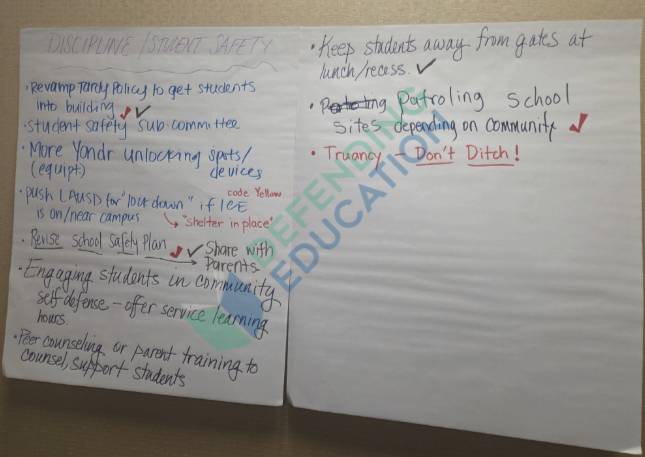 DISCIPLINE / STUDENT SAFETY
• Revamp Tardy Policy to get students
into building ✓ ✓
• Student Safety Sub committee
• More Yondr unlocking spots/
(equipt.) devices
• push LAUSD for "lock down" if ICE
code Yellow
is on/near campus
↳ "shelter in place"
• Revise School Safety Plan ✓ ✓ Share with
→ Parents
• Engaging students in community
self defense – offer service learning
hours.
• Peer counseling or parent training to
counsel, support students
• Keep students away from gates at
lunch/recess. ✓
• Patroling School
sites depending on community ✓
• Truancy – Don't Ditch!
DEFENDING
EDUCATION